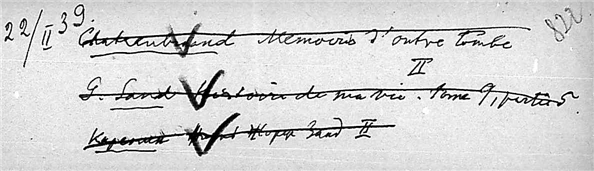 22/II 39.
822
Chateaubriand Memoires d'outre tombe
II
G. Sand Histoire de ma vie. tome 9, partie 5.
Жорж Занд II